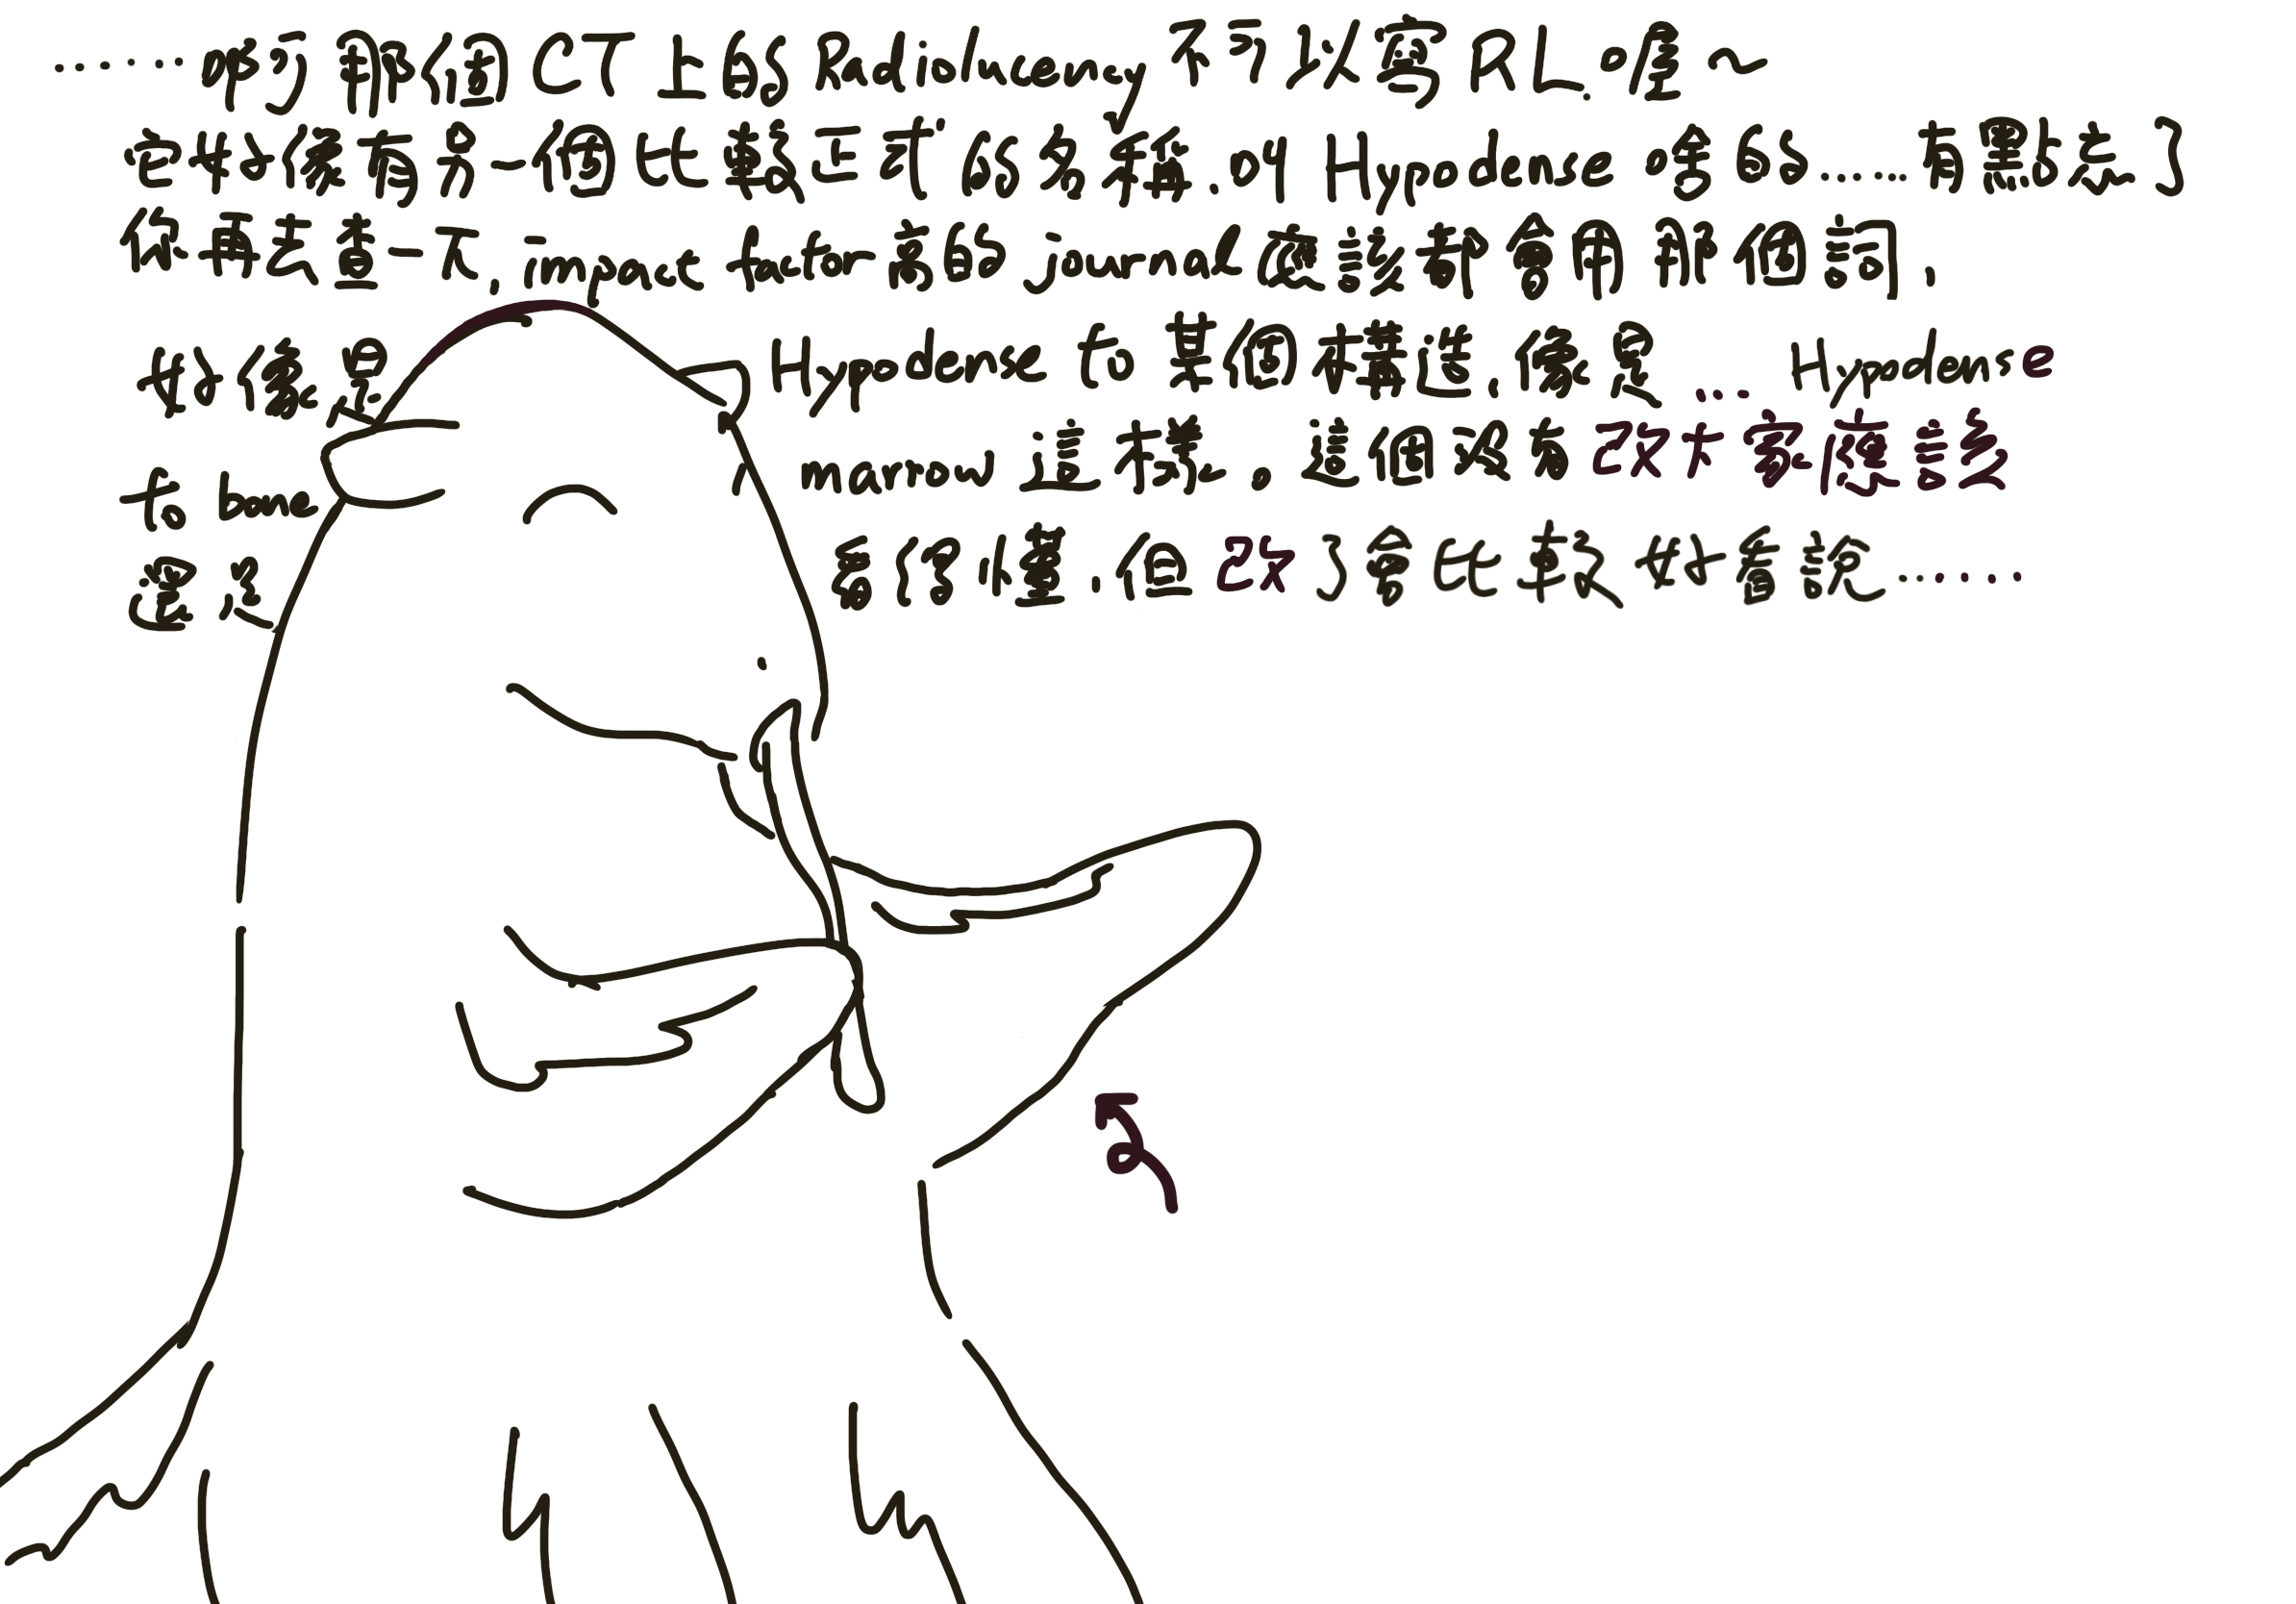 ……啊了那個CT上的Radiolucency不可以寫RL.喔~
它好像有另一個比較正式的名稱.叫Hypodense 啥的……有點忘了
你再去查一下,impact factor高的journal應該都會用那個詞,
好像是 Hypodense to 某個構造,像是... Hypodense
to bone marrow 這樣。這個沒有改大家應該
還是 看得懂,但改了會比較好看說……